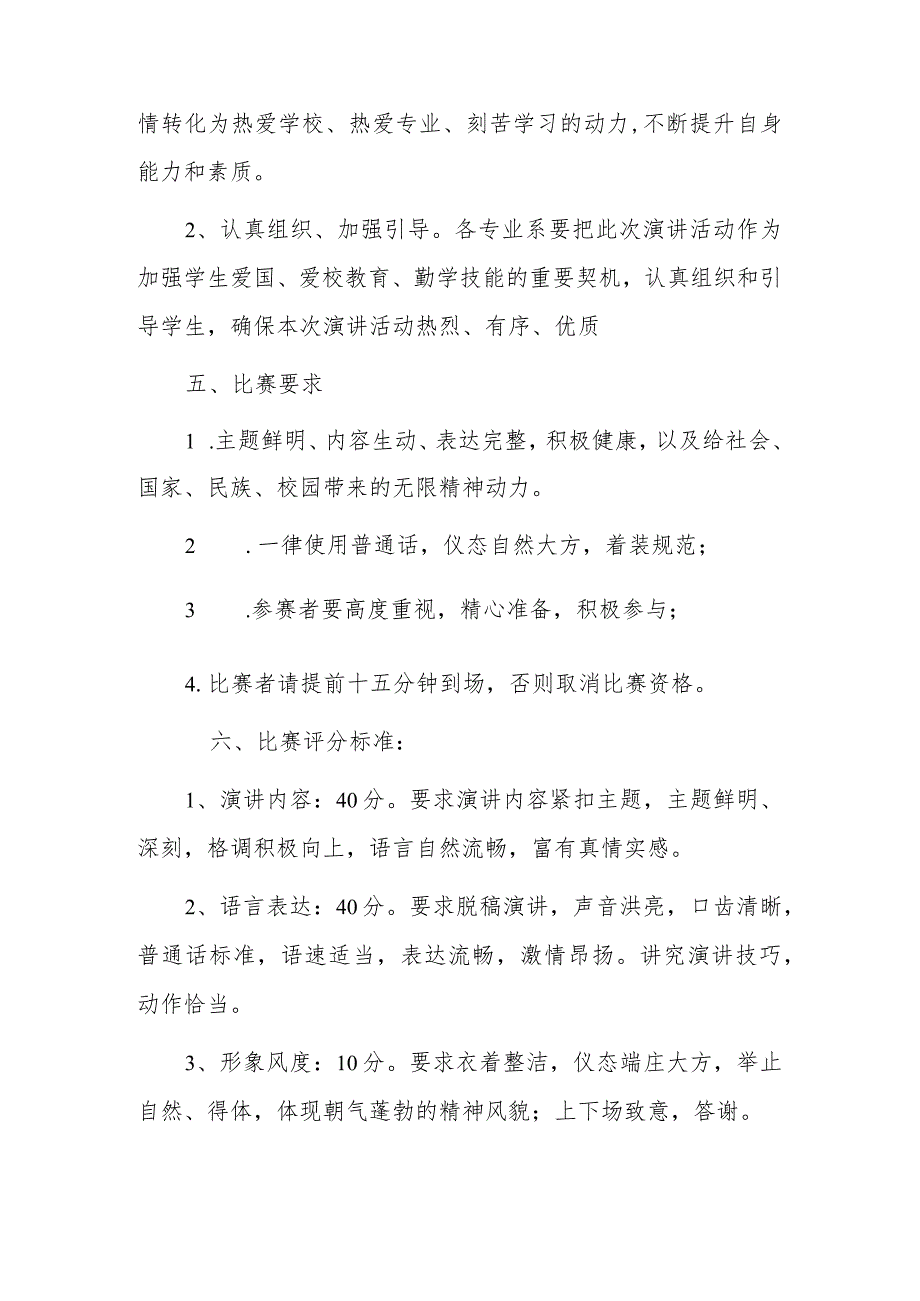 情转化为热爱学校、热爱专业、刻苦学习的动力,不断提升自身
能力和素质。
2、认真组织、加强引导。各专业系要把此次演讲活动作为
加强学生爱国、爱校教育、勤学技能的重要契机，认真组织和引
导学生，确保本次演讲活动热烈、有序、优质
五、比赛要求
1 .主题鲜明、内容生动、表达完整，积极健康，以及给社会、
国家、民族、校园带来的无限精神动力。
2 .一律使用普通话，仪态自然大方，着装规范；
3 .参赛者要高度重视，精心准备，积极参与；
4. 比赛者请提前十五分钟到场，否则取消比赛资格。
六、比赛评分标准：
1、演讲内容：40 分。要求演讲内容紧扣主题，主题鲜明、
深刻，格调积极向上，语言自然流畅，富有真情实感。
2、语言表达：40 分。要求脱稿演讲，声音洪亮，口齿清晰，
普通话标准，语速适当，表达流畅，激情昂扬。讲究演讲技巧，
动作恰当。
3、形象风度：10 分。要求衣着整洁，仪态端庄大方，举止
自然、得体，体现朝气蓬勃的精神风貌；上下场致意，答谢。